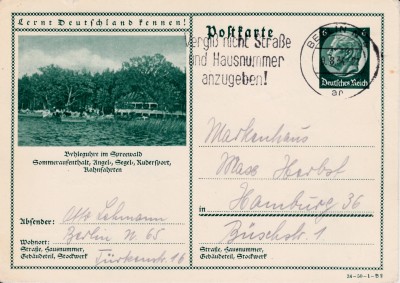 Lernt Deutschland kennen!
Postkarte
Vergiß nicht Straße
und Hausnummer
anzugeben!
BE
8.34
ar
6 6
Deutsches Reich
Byhleguhre im Spreewald
Sommeraufenthalt, Angel-, Segel-, Rudersport,
Kahnfahrten
Markenhaus
Max Herbst
in Hamburg 36
Büschstr. 1
Straße, Hausnummer,
Gebäudeteil, Stockwerk
Absender: Otto Lehmann
Wohnort: Berlin N 65
Straße, Hausnummer,
Gebäudeteil, Stockwerk
Türkenstr. 16